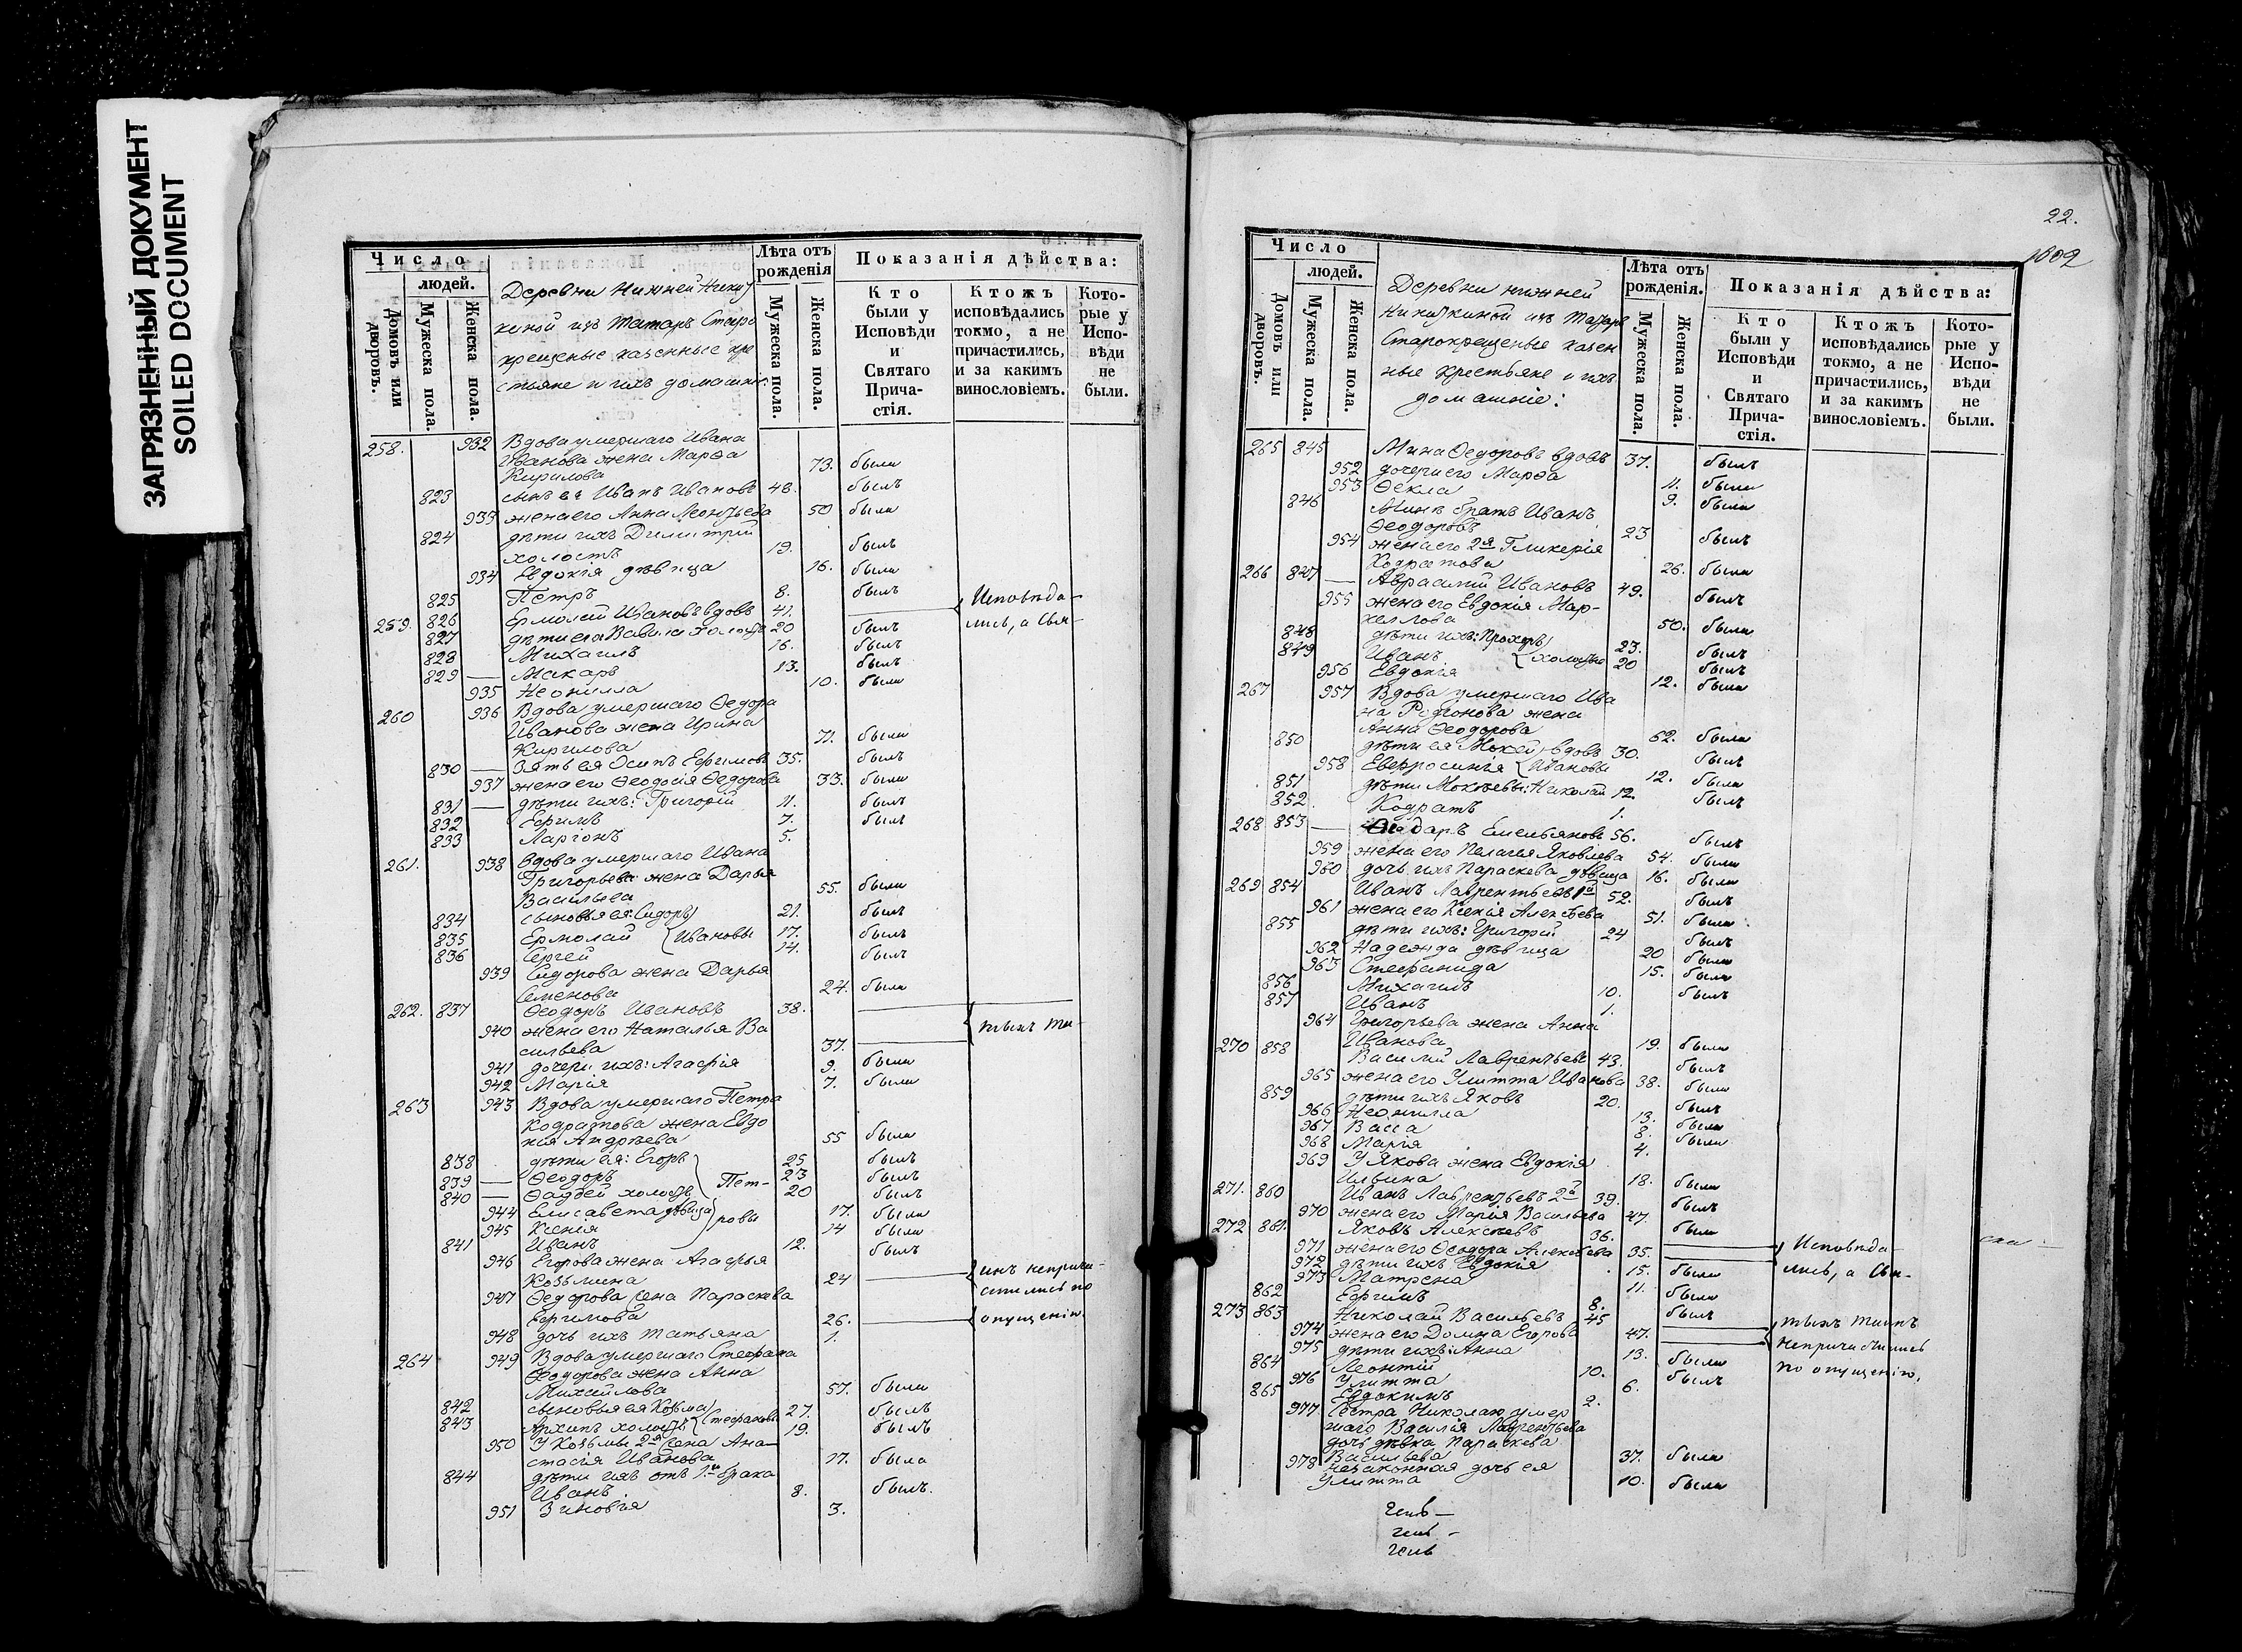 ЗАГРЯЗНЕННЫЙ ДОКУМЕНТ
SOILED DOCUMENT
Число
людей.
Домовъ или дворовъ.
Мужеска пола.
Женска пола.
Деревни Нижней Никит
киной изъ татаръ Старо
крещеные казенные кре
стьяне и ихъ домашніе:
Лѣта отъ рожденія
Мужеска пола.
Женска пола.
Показанія дѣйства:
Кто были у Исповѣди и Святаго Прича-стія.
Ктожъ исповѣдались токмо, а не причастились, и за какимъ винословіемъ.
Кото-рые у Испо-вѣди не были.
258. 932 Вдова умершаго Ивана
Иванова жена Марѳа
Кирилова 73. была
823 сынъ ея Иванъ Ивановъ 48. былъ
933 жена его Анна Леонтьева 50 была
824 дѣти ихъ Димитрій
холостъ 19. былъ
934 Евдокія дѣвица 16. была
825 Петръ 8. былъ
259. 826 Ермолай Ивановъ вдовъ 41. Исповѣда-
827 дѣти его Вавила холостъ 20 былъ лись, а Свя-
828 Михаилъ 16. былъ
829 — Макаръ 13. былъ
935 Неонилла 10. была
260 936 Вдова умершаго Ѳедора
Иванова жена Ирина
Кирилова 71. была
830 — Зять ея Осипъ Ефимовъ 35. былъ
937 жена его Ѳеодосія Ѳедорова 33. была
831 — дѣти ихъ: Григорій 11. былъ
832 Ефимъ 7. былъ
833 Ларіонъ 5.
261. 938 Вдова умершаго Ивана
Григорьева жена Дарья
Васильева 55. была
834 сыновья ея: Сидоръ 21. былъ
835 Ермолай Ивановы 17. былъ
836 Сергей 14. былъ
939 Сидорова жена Дарья
Семенова 24. была
262. 837 Ѳеодоръ Ивановъ 38.
940 жена его Наталья Ва тыхъ та-
сильева 37.
941 дочери ихъ: Агафія 9. была
942 Марія 7. была
263 943 Вдова умершаго Петра
Кодратова жена Евдо
кія Андрѣева 55 была
838 дѣти ея: Егоръ 25 былъ
839 — Ѳеодоръ Пет- 23 былъ
840 — Ѳаддей холостъ 20 былъ
944 Елисавета дѣвица ровы 17. была
945 Ксенія 14 была
841 Иванъ 12. былъ
946 Егорова жена Агафья
Козьмина 24 инъ неприча-
947 Ѳедорова жена Параскева стились по
Ефимова 26. опущенію.
948 дочь ихъ Татьяна 1.
264 949 Вдова умершаго Стефана
Ѳеодорова жена Анна
Михайлова 57. была
842 сыновья ея Козьма 27. былъ
843 Архипъ холостъ Стефановы 19. былъ
950 У Козьмы 2я жена Ана-
стасія Иванова 17. была
844 дѣти ихъ отъ 1го брака
Иванъ 8. былъ.
951 Зиновія 3.
22.
1602
Число
людей.
Домовъ или дворовъ.
Мужеска пола.
Женска пола.
Деревни нижней
Никиткиной изъ татаръ
Старокрещеные казен
ные крестьяне и ихъ
домашніе:
Лѣта отъ рожденія.
Мужеска пола.
Женска пола.
Показанія дѣйства:
Кто были у Исповѣди и Святаго Прича-стія.
Ктожъ исповѣдались токмо, а не причастились, и за какимъ винословіемъ.
Кото-рые у Испо-вѣди не были.
265 845 Мина Ѳедоровъ вдовъ 37. былъ
952 дочери его Марѳа 11. была
953 Ѳекла 9. была
846 Минъ братъ Иванъ
Ѳеодоровъ 23 былъ
954 жена его 2я Гликерія
Кодратова 26. была
266 847 — Аврамій Ивановъ 49. былъ
955 жена его Евдокія Мар-
келова 50. была
848 дѣти ихъ: Прохоръ 23. былъ
849 Иванъ холосты 20 былъ
956 Евдокія 12. была
267 957 Вдова умершаго Ива
на Родіонова жена
Анна Ѳеодорова 62. была
850 дѣти ея Мокей вдовъ 30. былъ
958 Евфросинія Ивановы 12. была
851 дѣти Мокѣевы: Николай 12. былъ
852 Кодратъ 1.
268 853 — Ѳедоръ Емельяновъ 56. былъ
959 жена его Пелагья Яковлева 54. была
960 дочь ихъ Параскева дѣвица 16. была
269 854 Иванъ Лаврентьевъ 1й 52. былъ
961 жена его Ксенія Алексѣева 51. была
855 дѣти ихъ: Григорій 24 былъ
962 Надежда дѣвица 20 была
963 Стефанида 15. была
856 Михаилъ 10. былъ
857 Иванъ 1.
964 Григорьева жена Анна
Иванова 19. была
270 858 Василій Лаврентьевъ 43. былъ
965 жена его Улитта Иванова 38. была
859 дѣти ихъ Яковъ 20. былъ
966 Неонилла 13. была
967 Васса 8. была
968 Марія 4.
969 У Якова жена Евдокія
Ильина 18. была
271. 860 Иванъ Лаврентьевъ 2й 39. былъ
970 жена его Марія Васильева 47. была
272 861. Яковъ Алексѣевъ 36. Исповѣда-
971 жена его Ѳеодора Алексѣева 35. лись, а Свя-
972 дѣти ихъ Евдокія 15. была
973 Матрена 11. была
862 Ефимъ 8. былъ
273 863 Николай Васильевъ 45 тыхъ таинъ
974 жена его Домна Егорова 47. непричастились
975 дѣти ихъ: Анна 13. была по опущенію.
864 Леонтій 10. былъ
976 Улитта 6.
865 Евдокимъ 2.
977 Сестра Николаю умер
шаго Василія Лаврентьева
дочь дѣвка Параскева
Васильева 37. была
978 незаконная дочь ея
Улитта 10. была